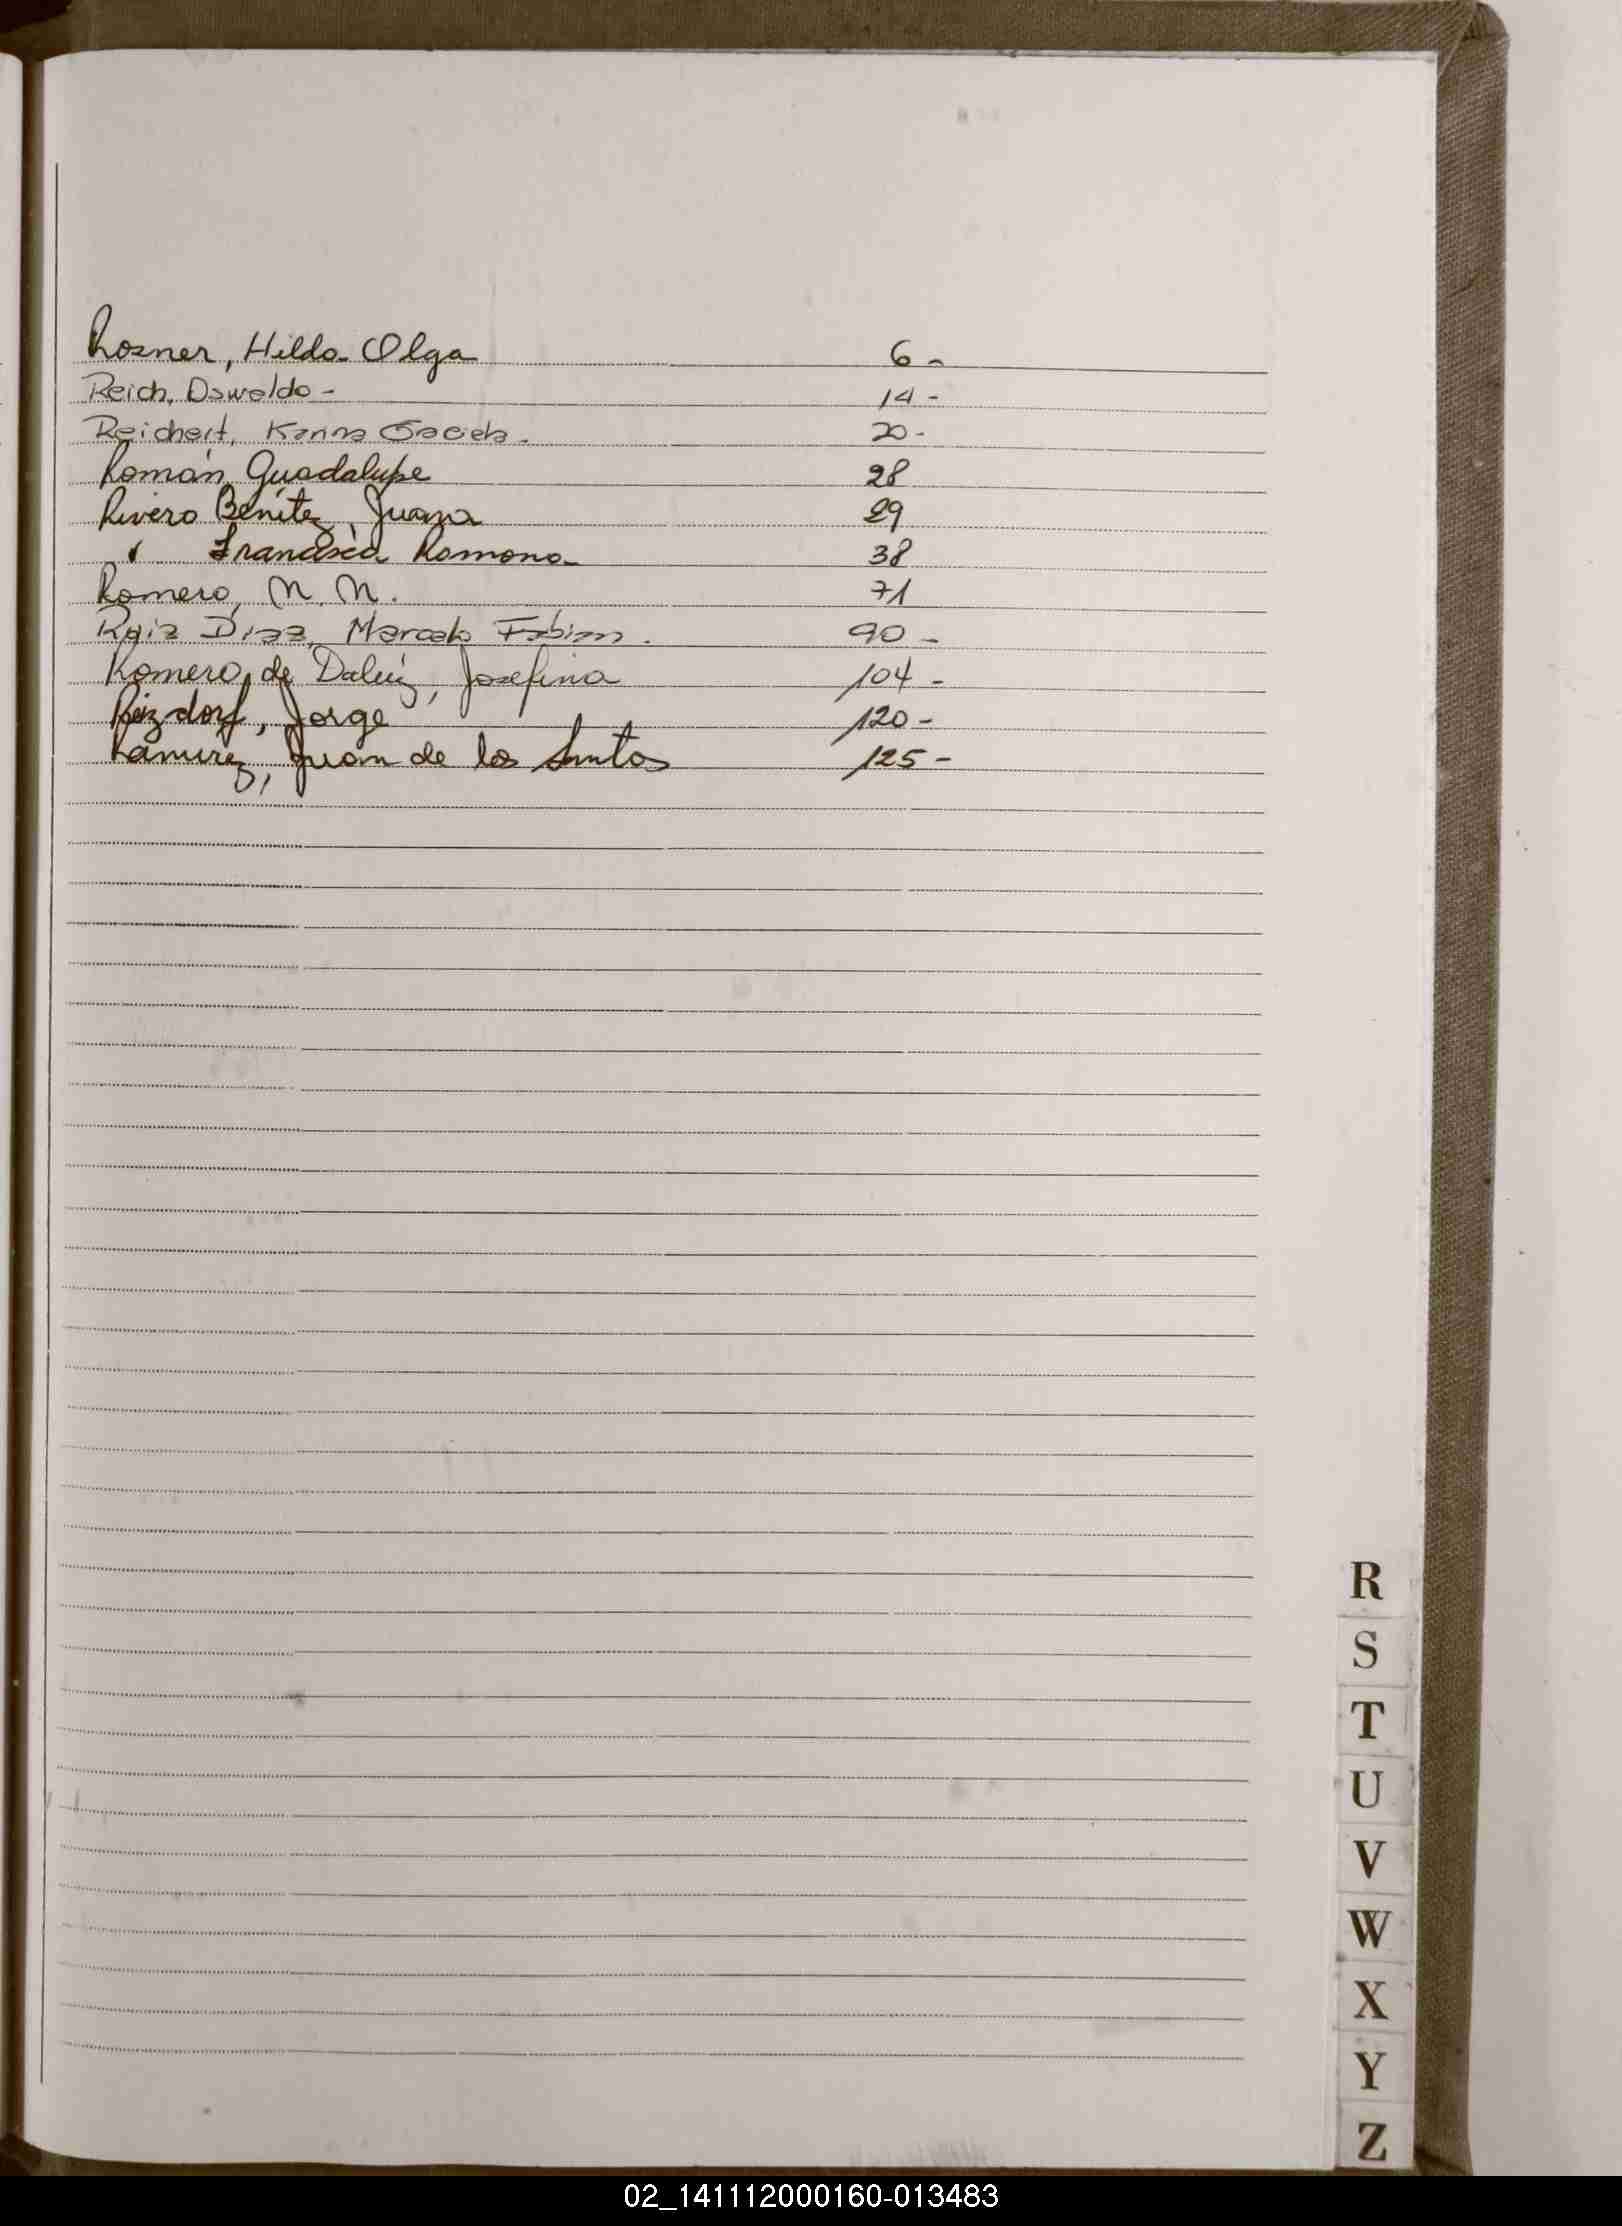 Rosner, Hilda Olga 6-
Reich, Oswaldo - 14-
Reichert, Karina Graciela. 20-
Román, Guadalupe 28
Rivero Benítez, Juana 29
" Francisca Romana 38
Romero, N. N. 71
Ruiz Diaz, Marcelo Fabian. 90-
Romero de Daluz, Josefina 104-
Reizdorf, Jorge 120-
Ramirez, Juan de los Santos 125-
R
S
T
U
V
W
X
Y
Z
02_141112000160-013483